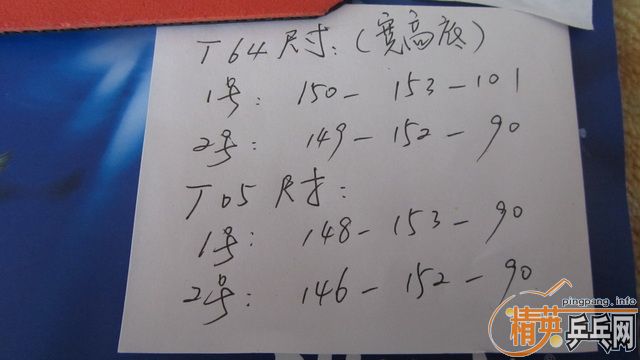 T64尺寸:(宽高底)
1号: 150-153-101
2号: 149-152-90
T05尺寸:
1号: 148-153-90
2号: 146-152-90
pingpang.info
精英乒乓网